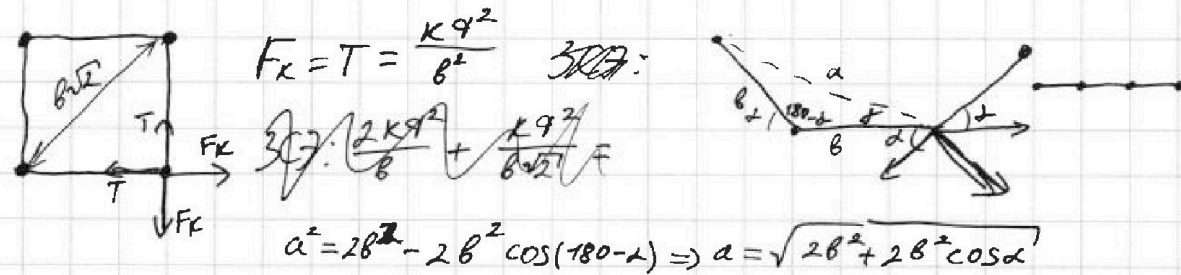 b√2
T
T
Fк
Fк
Fк = T = kq²/b²
ЗСЭ: 2kq²/b + kq²/b√2 =
a
b
α
180-α
b
α
α
a² = 2b² - 2b² cos(180-α) => a = √(2b² + 2b² cosα)